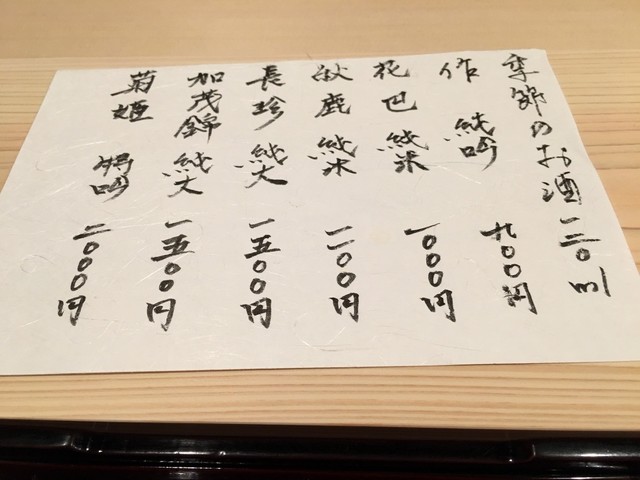 季節のお酒 一二〇ml
作 純吟 九〇〇円
花巴 純米 一〇〇〇円
秋鹿 純米 一一〇〇円
長珍 純大 一五〇〇円
加茂錦 純大 一五〇〇円
菊姫 特吟 二〇〇〇円